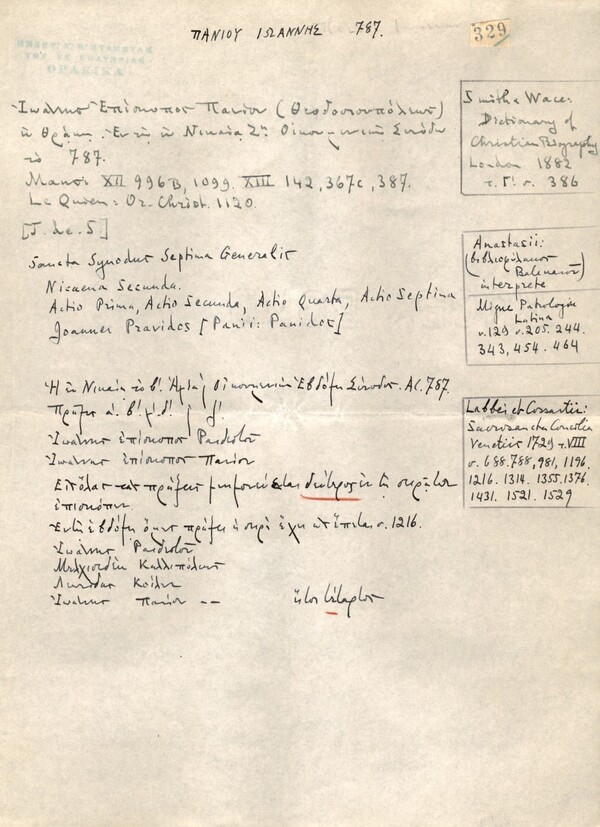 ΠΑΝΙΟΥ ΙΩΑΝΝΗΣ 787.
329
Ἰωάννης Ἐπίσκοπος Πανίου (Θεοδοσιουπόλεως)
ἐν Θράκῃ. Ἐν τῇ ἐν Νικαίᾳ 2ᾳ Οἰκουμενικῇ Συνόδῳ
τὸ 787.
Mansi XII 996B, 1099. XIII 142, 367c, 387.
Le Quien: Or. Christ. 1120.
[J. de. S.]
Smith & Wace:
Dictionary of
Christian Biography
London 1882
τ. Γ! σ. 386
Sancta Synodus Septima Generalis
Nicaena Secunda.
Actio Prima, Actio Secunda, Actio Quarta, Actio Septima
Joannes Pravidos [Panii: Panidos]
Anastasii:
interprete
Migne Patrologia
Latina
v. 129 σ. 205. 244.
343, 454. 464
Ἡ ἐν Νικαίᾳ τὸ β! Ἁγία Οἰκουμενικὴ Ἑβδόμη Σύνοδος. A.C. 787.
Ἰωάννης ἐπίσκοπος
Ἰωάννης ἐπίσκοπος Πανίου
Εἰς ὅλας τὰς πράξεις μνημονεύεται δεύτερος ἐκ τῆς σειρᾶς τῶν
ἐπισκόπων.
Ἐν τῇ ἑβδόμῃ ὅμως πράξει ἡ σειρὰ ἔχει ὡς ἕπεται σ. 1216.
Ἰωάννης
Μελχισεδὲκ Καλλιπόλεως
Λεωνίδας Κοίλων
Ἰωάννης Πανίου -- ἤτοι τέταρτος
Labbei et Cossartii:
Sacrosancta Concilia
Venetiis 1729 τ. VIII
σ. 688. 788, 981, 1196.
1216. 1314. 1355. 1376.
1431. 1521. 1529